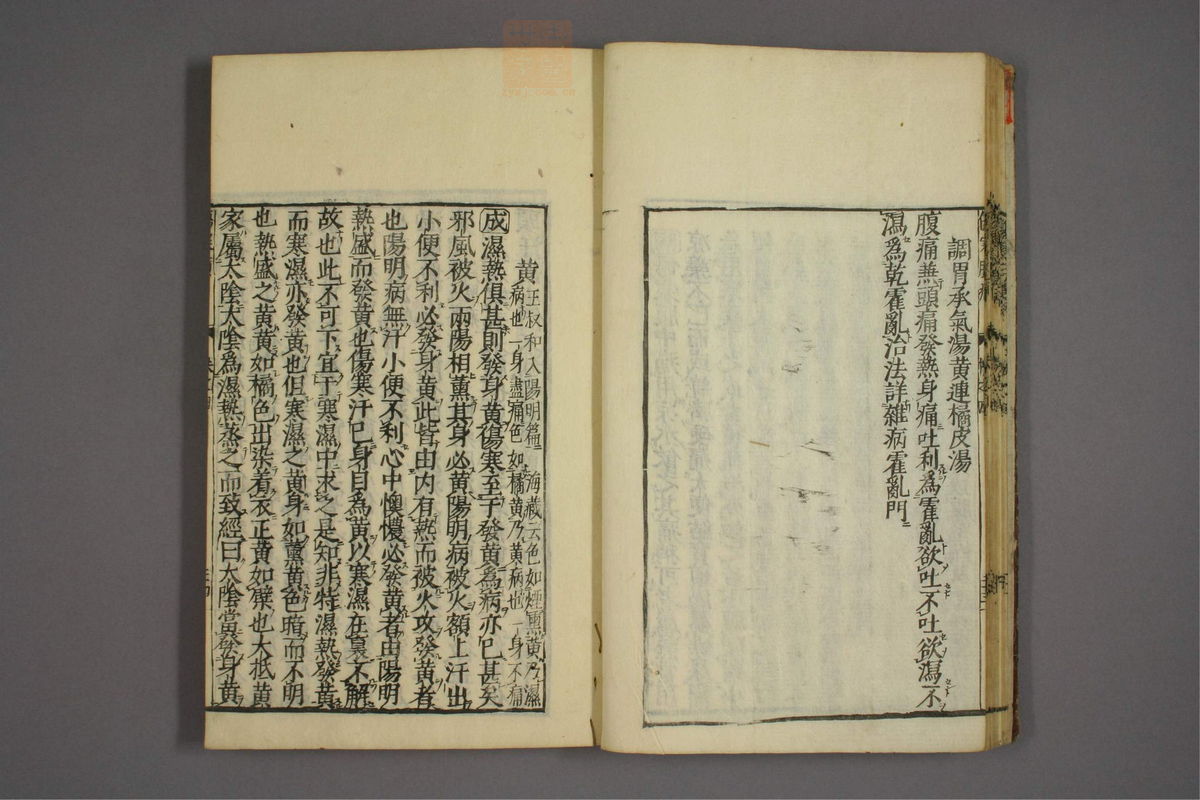 調胃承氣湯黄連橘皮湯
腹痛兼頭痛發熱身痛吐利爲霍亂欲吐不吐欲瀉不
瀉爲乾霍亂治法詳雜病霍亂門
黄 王叔和入陽明篇 海藏云色如煙熏黄乃濕
病也一身盡痛色如橘黄乃黄病也一身不痛
成濕熱俱甚則發身黄傷寒至于發黄爲病亦已甚矣
邪風被火兩陽相薰其身必黄陽明病被火額上汗出
小便不利必發身黄此皆由内有熱而被火攻發黄者
也陽明病無汗小便不利心中懊憹必發黄者由陽明
熱盛而發黄也傷寒汗已身目爲黄以寒濕在裏不解
故也此不可下宜于寒濕中求之是知非特濕熱發黄
而寒濕亦發黄也但寒濕之黄身如薰黄色暗而不明
也熱盛之黄黄如橘色出染着衣正黄如蘗也大抵黄
家屬太陰太陰爲濕熱蒸之而致經曰太陰當發身黄